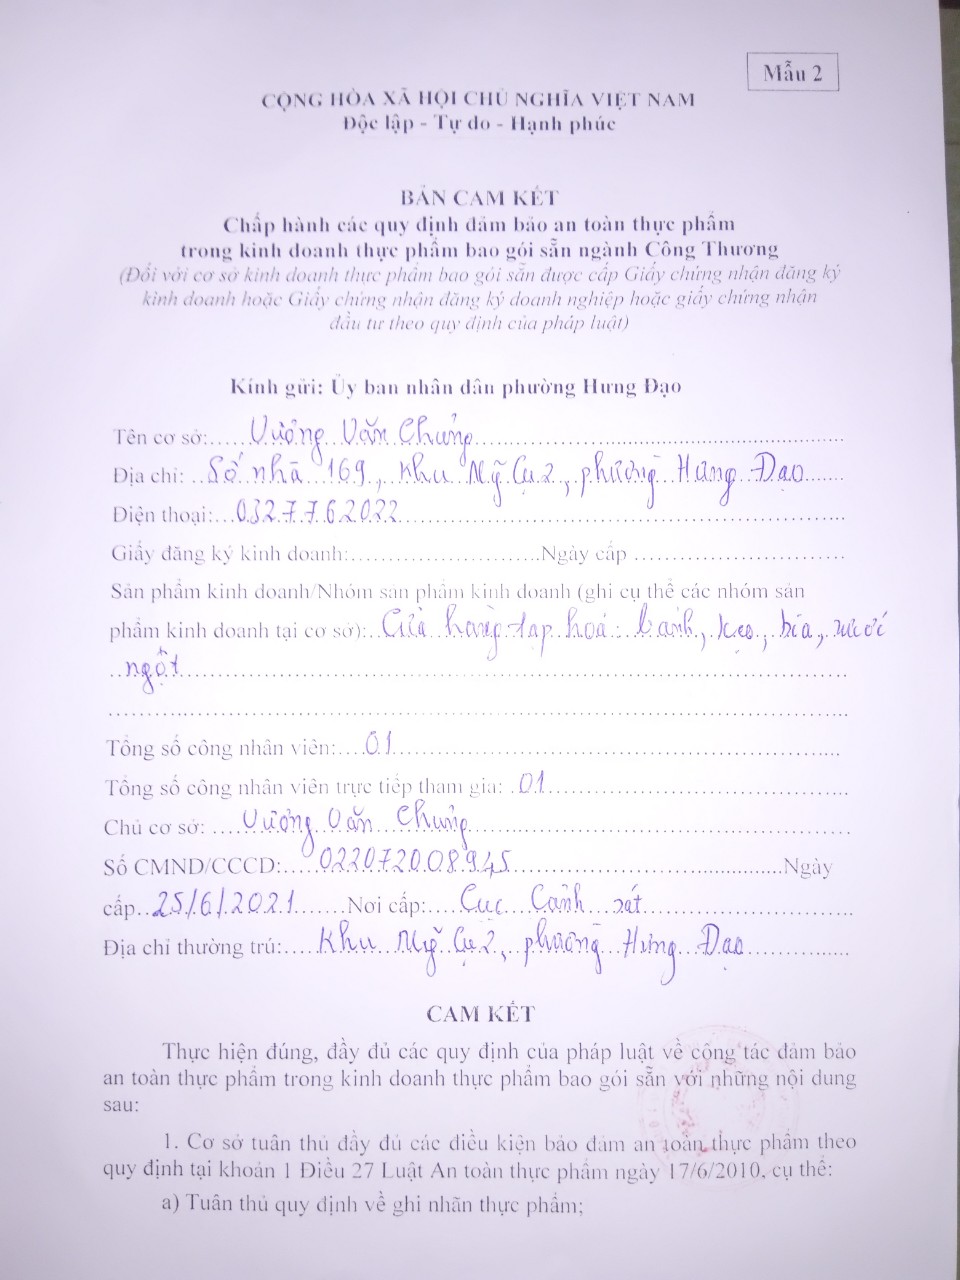 Mẫu 2
CỘNG HÒA XÃ HỘI CHỦ NGHĨA VIỆT NAM
Độc lập - Tự do - Hạnh phúc
BẢN CAM KẾT
Chấp hành các quy định đảm bảo an toàn thực phẩm
trong kinh doanh thực phẩm bao gói sẵn ngành Công Thương
(Đối với cơ sở kinh doanh thực phẩm bao gói sẵn được cấp Giấy chứng nhận đăng ký
kinh doanh hoặc Giấy chứng nhận đăng ký doanh nghiệp hoặc giấy chứng nhận
đầu tư theo quy định của pháp luật)
Kính gửi: Ủy ban nhân dân phường Hưng Đạo
Tên cơ sở: Vương Văn Chưởng
Địa chỉ: Số nhà 169, Khu Mỹ Cụ 2, phường Hưng Đạo
Điện thoại: 0327762022
Giấy đăng ký kinh doanh: Ngày cấp
Sản phẩm kinh doanh/Nhóm sản phẩm kinh doanh (ghi cụ thể các nhóm sản
phẩm kinh doanh tại cơ sở): Cửa hàng tạp hoá: bánh, kẹo, bia, nước
ngọt
Tổng số công nhân viên: 01
Tổng số công nhân viên trực tiếp tham gia: 01
Chủ cơ sở: Vương Văn Chưởng
Số CMND/CCCD: 022072008945 Ngày
cấp 25/6/2021 Nơi cấp: Cục Cảnh sát
Địa chỉ thường trú: Khu Mỹ Cụ 2, phường Hưng Đạo
CAM KẾT
Thực hiện đúng, đầy đủ các quy định của pháp luật về công tác đảm bảo
an toàn thực phẩm trong kinh doanh thực phẩm bao gói sẵn với những nội dung
sau:
1. Cơ sở tuân thủ đầy đủ các điều kiện bảo đảm an toàn thực phẩm theo
quy định tại khoản 1 Điều 27 Luật An toàn thực phẩm ngày 17/6/2010, cụ thể:
a) Tuân thủ quy định về ghi nhãn thực phẩm;